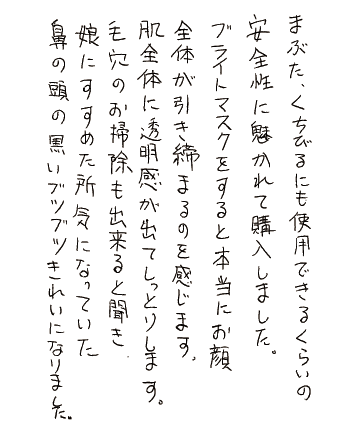 まぶた、くちびるにも使用できるくらいの
安全性に魅かれて購入しました。
ブライトマスクをすると本当にお顔
全体が引き締まるのを感じます。
肌全体に透明感が出てしっとりします。
毛穴のお掃除も出来ると聞き
娘にすすめた所気になっていた
鼻の頭の黒いブツブツきれいになりました。